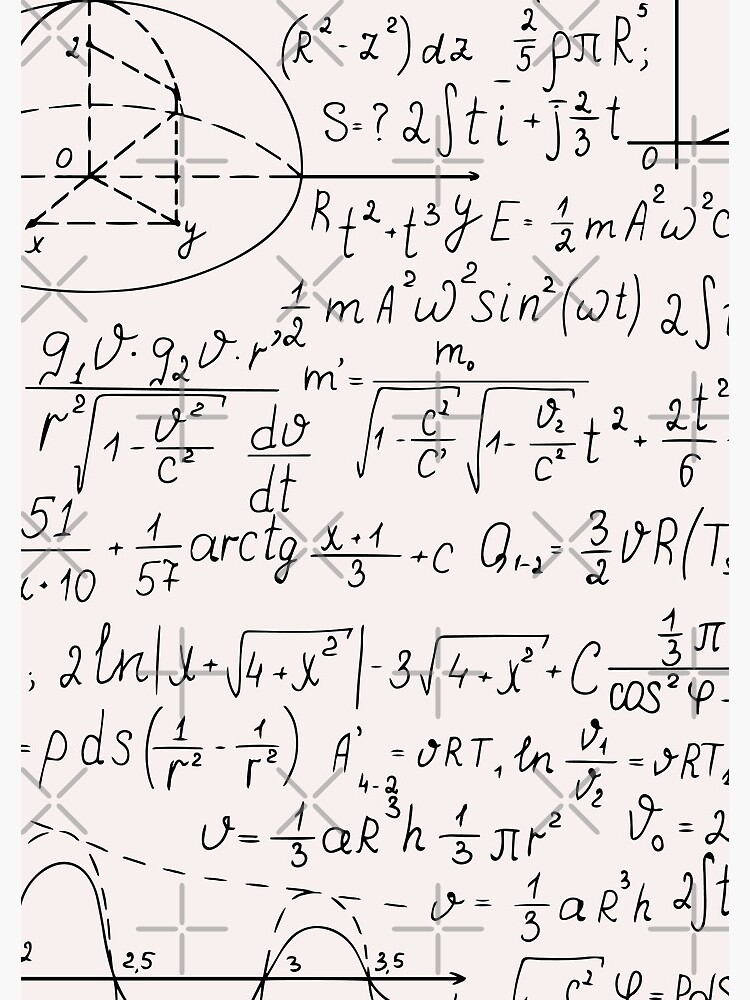 2
(R² - z²) dz 2/5 ρπ R⁵;
S = ? 2∫ t i̅ + j̅ 2/3 t
O
0
R t² + t³ y E = 1/2 m A² ω² c
x
y
1/2 m A² ω² sin² (ωt) 2∫
g₁ϑ · g₂ϑ · r'² / r² √(1 - ϑ²/c²) m' = m₀ / √(1 - c²/c') √(1 - ϑ₂/c²) t² + 2t²/6
dϑ/dt
51 / · 10 + 1/57 arctg x+1/3 + c Q₁₋₂ = 3/2 ϑR(T
; 2 ln|x + √(4 + x²)| - 3√(4 + x²) + C 1/3 π / cos² φ -
= ρ ds (1/r² - 1/r²) A'₄₋₂ = ϑRT₁ ln ϑ₁/ϑ₂ = ϑRT₁
ϑ = 1/3 aR³h 1/3 πr² ϑ₀ = 2
ϑ = 1/3 a R³h 2∫t
2 2,5 3 3,5
c² φ = ρds